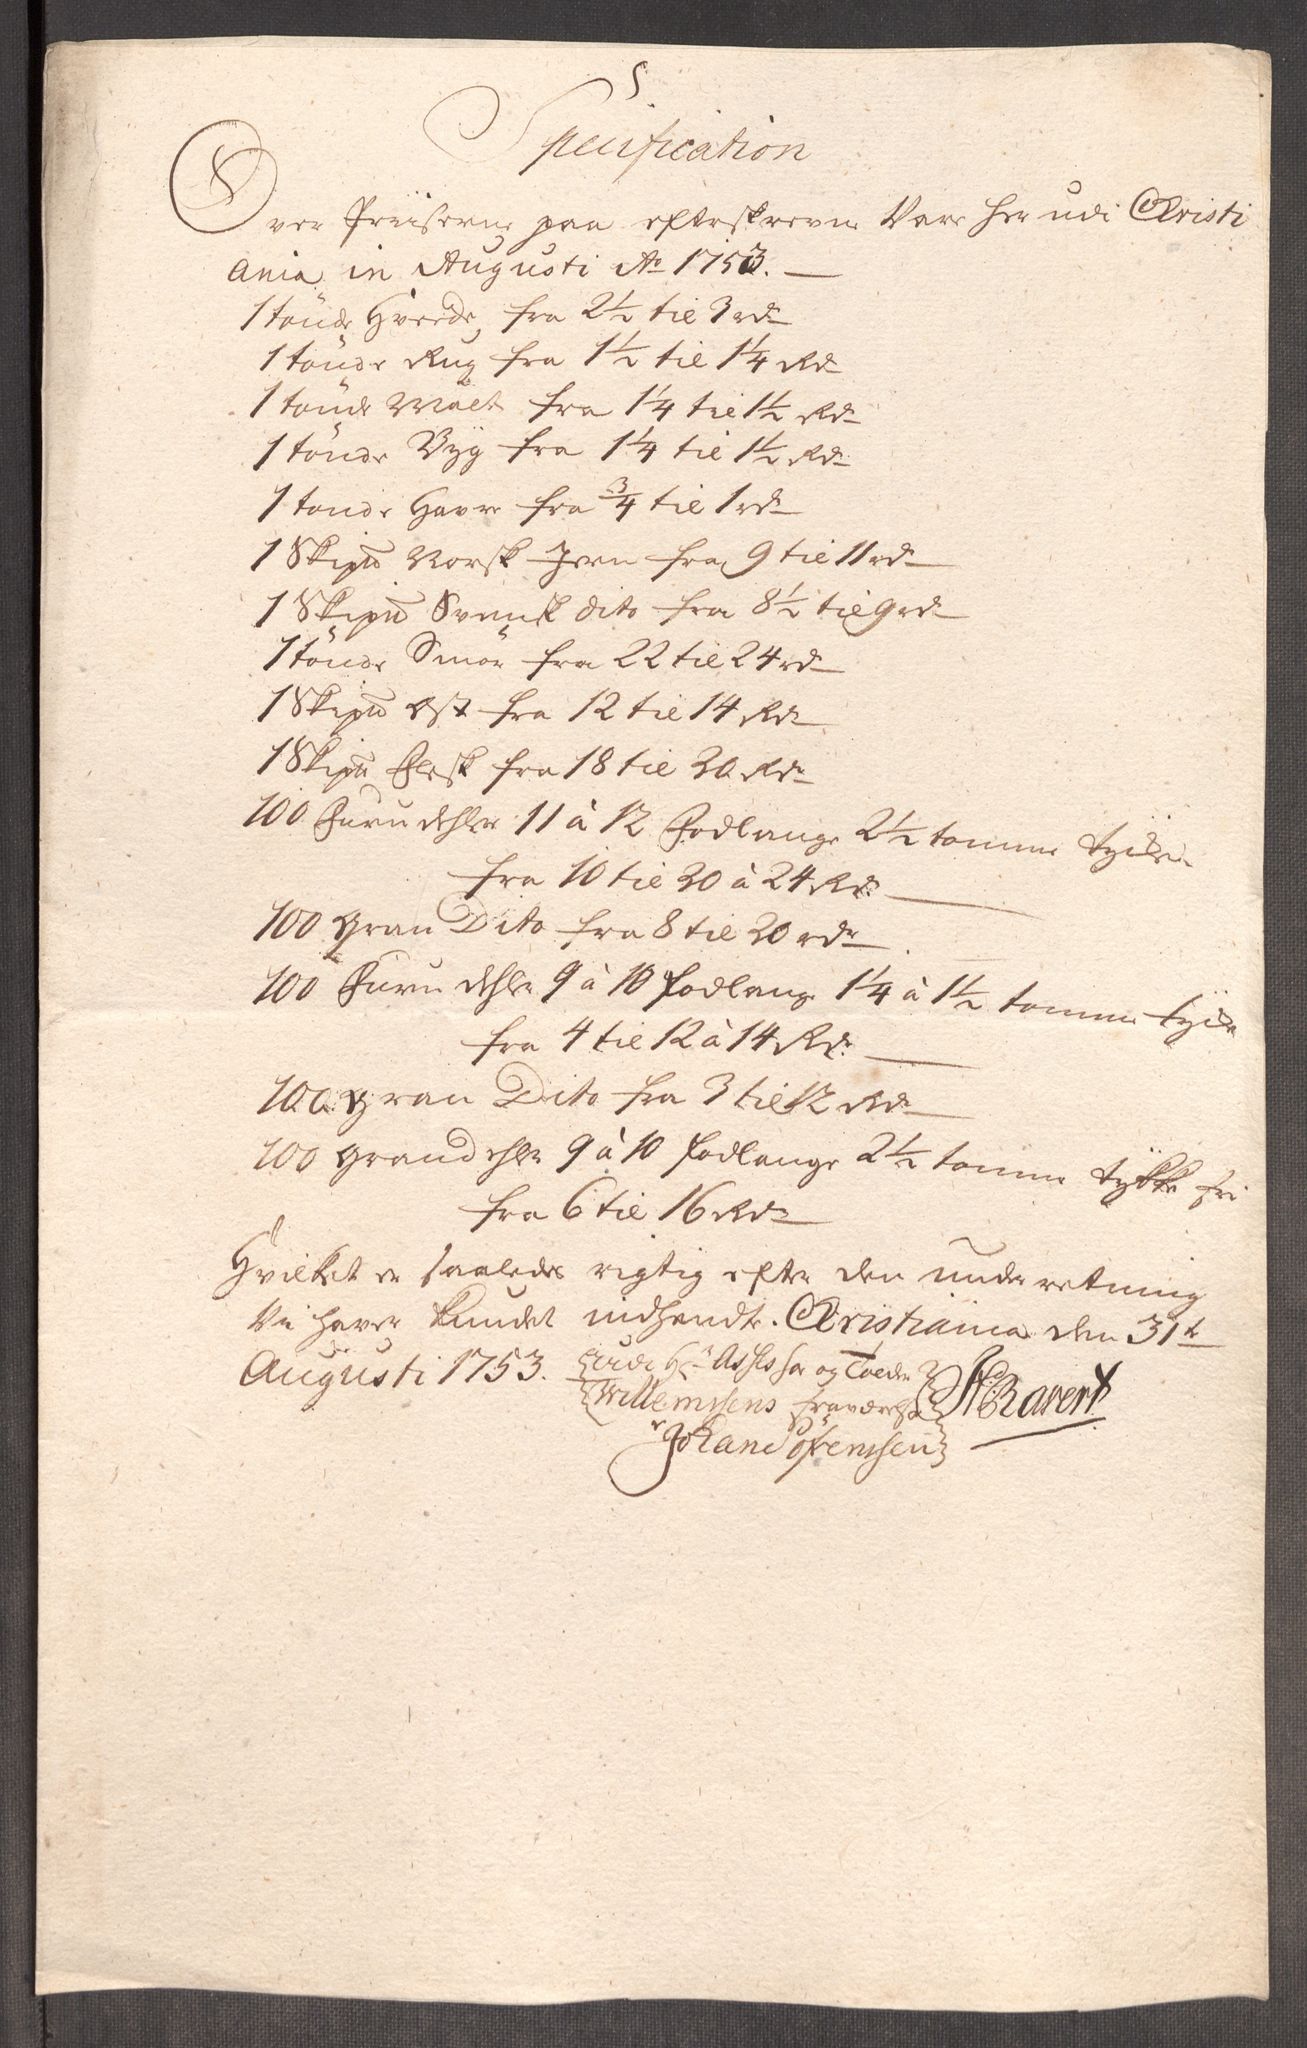 Specification
Over Priiserne paa efterskrevne Vare her udi Christi
ania in Augusti Ao 1753.
1 tönde Hvede fra 2 1/2 til 3 rdr
1 tönde Rug fra 1 1/2 til 1 1/4 Rdr
1 tönde Malt fra 1 1/4 til 1 1/2 Rdr
1 tönde Byg fra 1 1/4 til 1 1/2 Rdr
1 tonde Havre fra 3/4 til 1 rdr
1 Skipd Norsk Jern fra 9 til 11 rdr
1 Skipd Svensk dito fra 8 1/2 til 9 rdr
1 tönde Smör fra 22 til 24 rdr
1 Skipd Ost fra 12 til 14 Rdr
1 Skipd Flesk fra 18 til 20 Rdr
100 Furu dehler 11 à 12 Fodlange 2 1/2 tomme tycke
fra 10 til 20 à 24 Rdr
100 Gran Dito fra 8 til 20 rdr
100 Furu dehler 9 à 10 fodlange 1 1/4 à 1 1/2 tomme tycke
fra 4 til 12 à 14 Rdr
100 Gran Dito fra 3 til 12 Rdr
100 Grandehler 9 à 10 fodlange 2 1/2 tomme tykke
fra 6 til 16 Rdr
Hvilket er saaledes rigtig efter den underretning
Vi haver kundet indhendte. Christiania den 31te
Augusti 1753. udi Hr og Told
Willemssens fraværelse HC Ravert
Johan Sörenssen